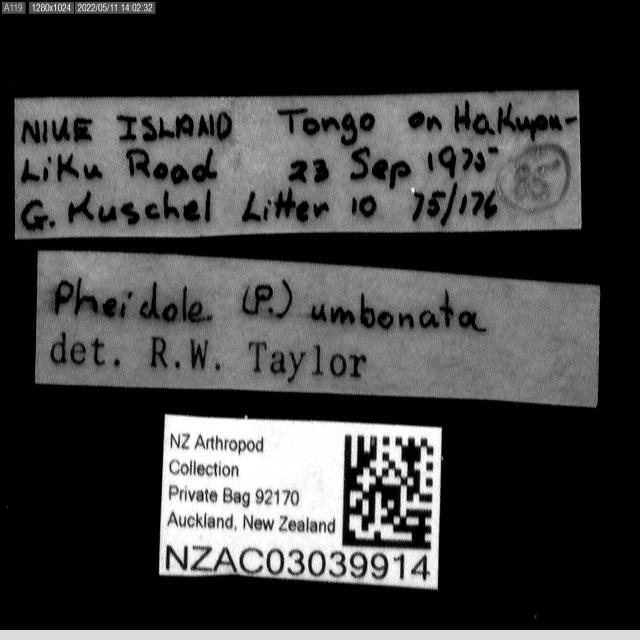 A119 1280x1024 2022/05/11 14:02:32
NIUE ISLAND Tongo on Hakupu-
Liku Road 23 Sep 1975 85
G. Kuschel Litter 10 75/176
Pheidole (P.) umbonata
det. R.W. Taylor
NZ Arthropod
Collection
Private Bag 92170
Auckland, New Zealand
NZAC03039914